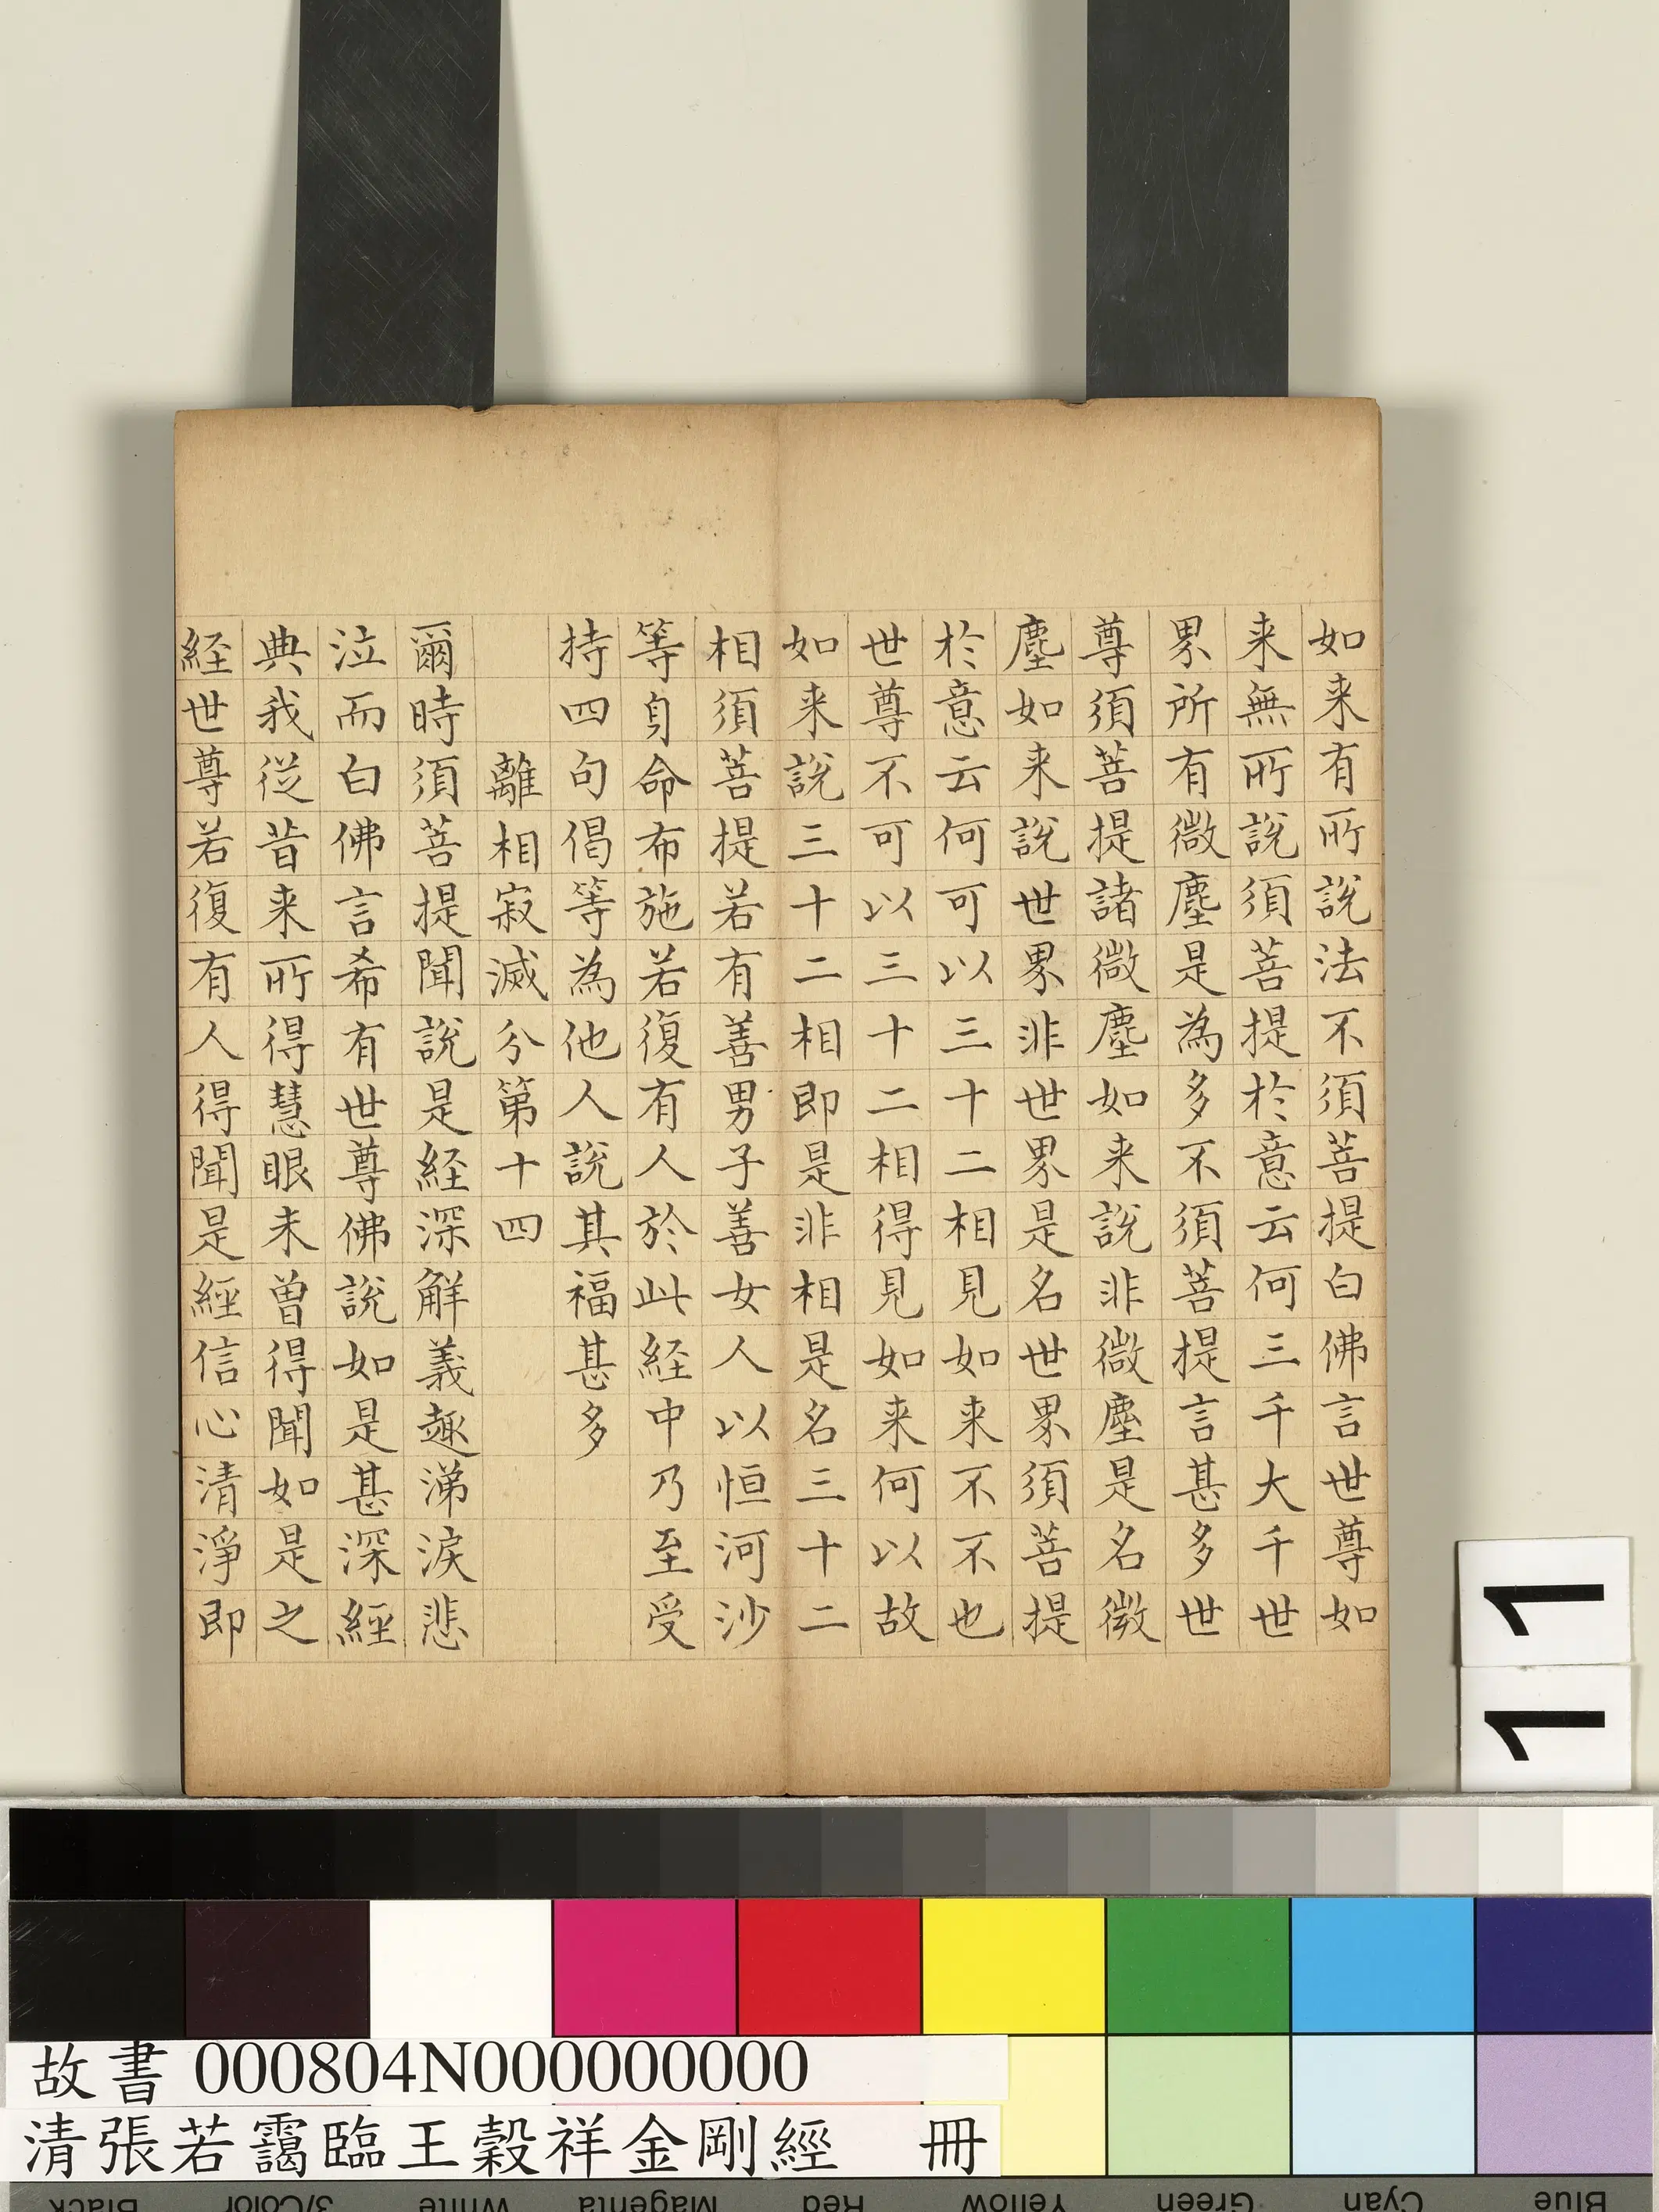 如来有所說法不須菩提白佛言世尊如
来無所說須菩提於意云何三千大千世
界所有微塵是為多不須菩提言甚多世
尊須菩提諸微塵如来說非微塵是名微
塵如来說世界非世界是名世界須菩提
於意云何可以三十二相見如来不不也
世尊不可以三十二相得見如来何以故
如来說三十二相即是非相是名三十二
相須菩提若有善男子善女人以恒河沙
等身命布施若復有人於此經中乃至受
持四句偈等為他人說其福甚多
離相寂滅分第十四
爾時須菩提聞說是經深解義趣涕淚悲
泣而白佛言希有世尊佛說如是甚深經
典我從昔来所得慧眼未曾得聞如是之
經世尊若復有人得聞是經信心清淨即
11
故書 000804N000000000
清張若靄臨王穀祥金剛經 冊
Black 3/Color White Magenta Red Yellow Green Cyan Blue